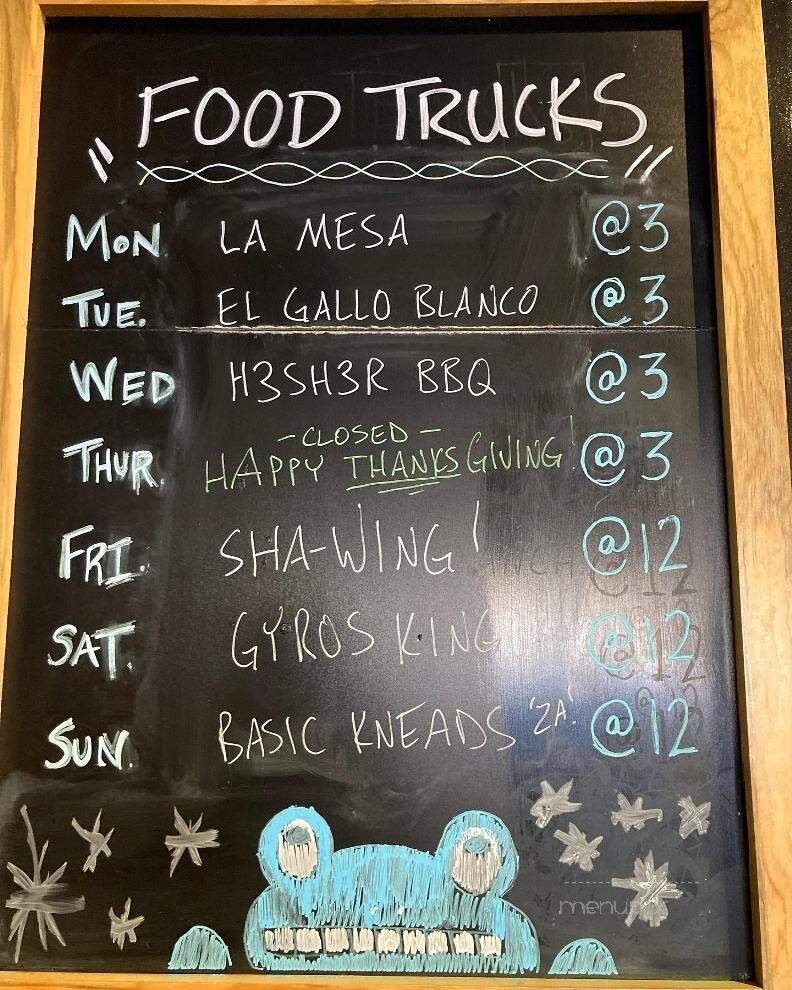 "FOOD TRUCKS"
MON LA MESA @3
TUE. EL GALLO BLANCO @3
WED H3SH3R BBQ @3
-CLOSED-
THUR. HAPPY THANKSGIVING! @3
FRI. SHA-WING! @12
SAT. GYROS KING @12
SUN. BASIC KNEADS 'ZA! @12
menu